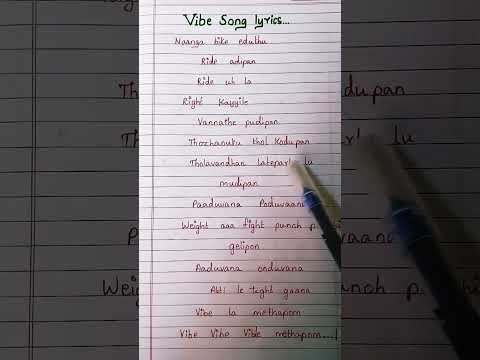 Vibe Song lyrics...
Naanga bike eduthu
Ride adipan
Ride uh la
Right Kayyile
Vannathe pudipan
Thozhanuku thol Kodupan
Tholavandhan lu
mudipan
Paaduvana Poduvaana
Weight aaa fight punch
gelipon
Aaduvana onduvana
le tight gaana
Vibe la methapom
Vibe Vibe Vibe methapom....!